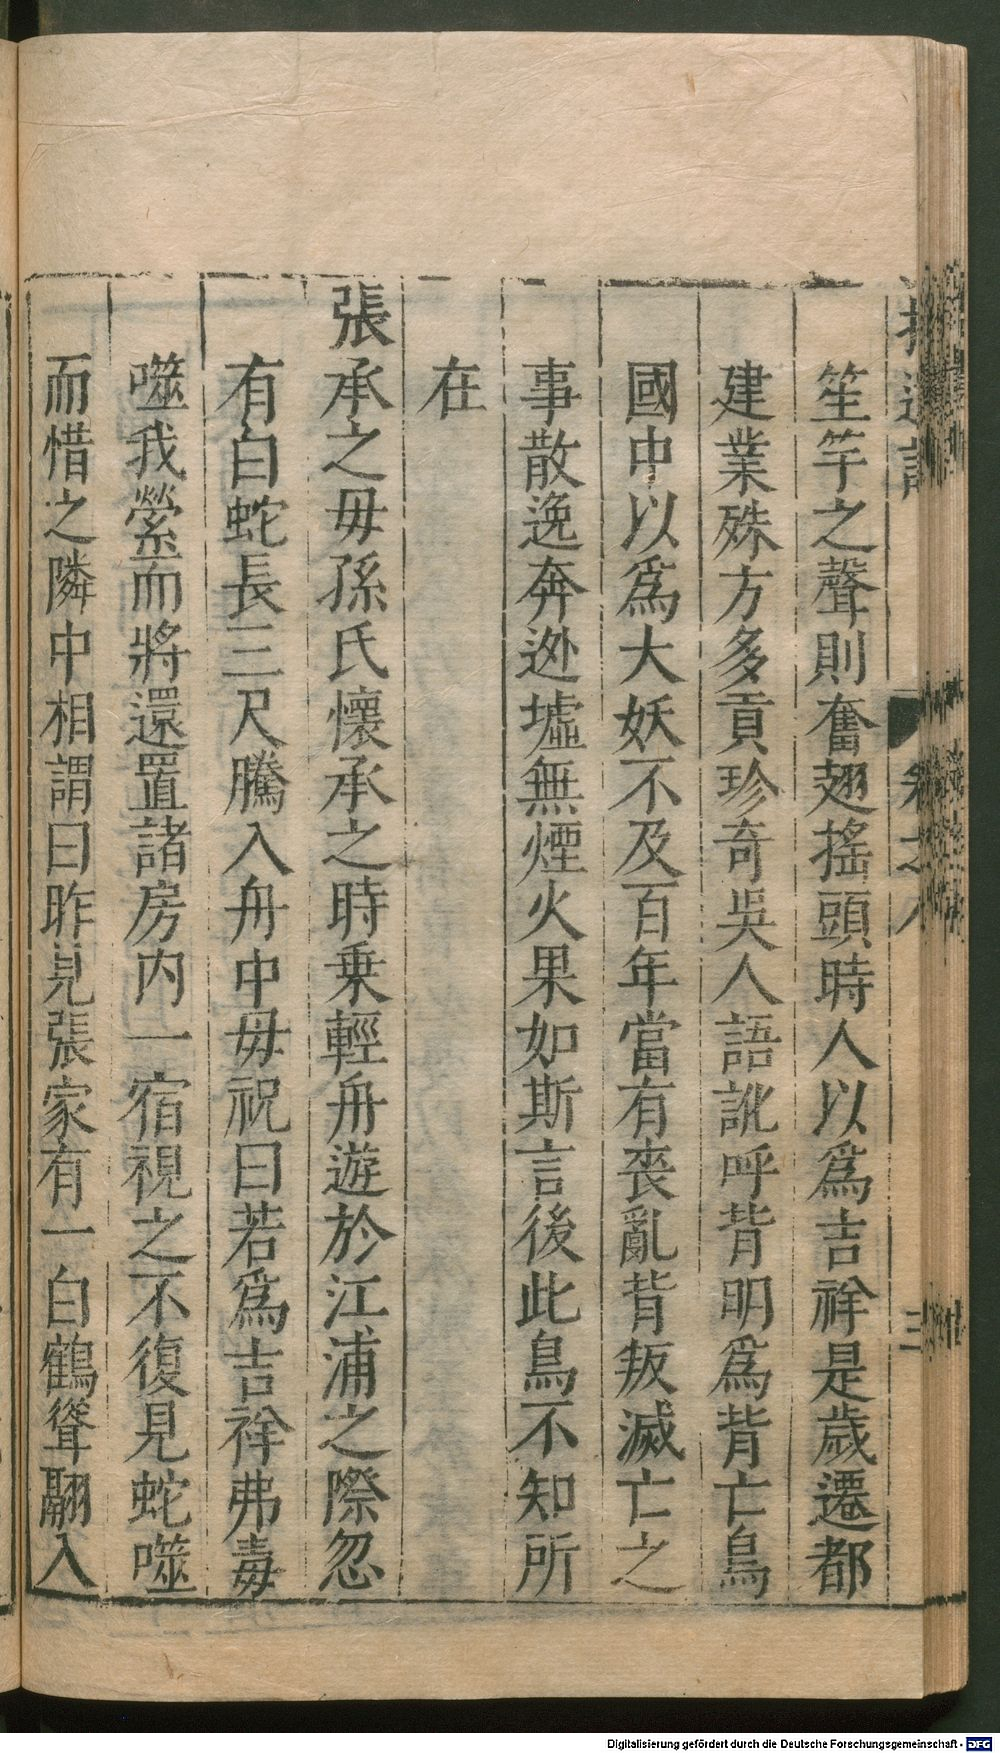 笙竽之聲則奮翅搖頭時人以爲吉祥是歲遷都
建業殊方多貢珍奇吳人語訛呼背明爲背亡鳥
國中以爲大妖不及百年當有喪亂背叛滅亡之
事散逸奔逃墟無煙火果如斯言後此鳥不知所
在
張承之毋孫氏懷承之時乗輕舟遊於江浦之際忽
有白蛇長三尺騰入舟中毋祝曰若爲吉祥弗毒
噬我縈而將還置諸房内一宿視之不復見蛇噬
而惜之隣中相謂曰昨見張家有一白鶴聳翮入
Digitalisierung gefördert durch die Deutsche Forschungsgemeinschaft - DFG